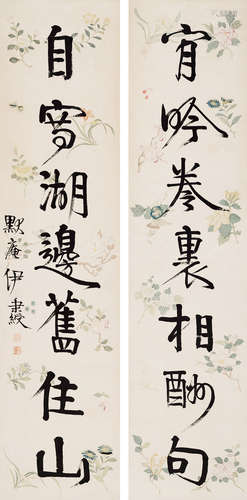 肎吟卷裏相酬句
自寫湖邊舊住山
默庵伊秉綬